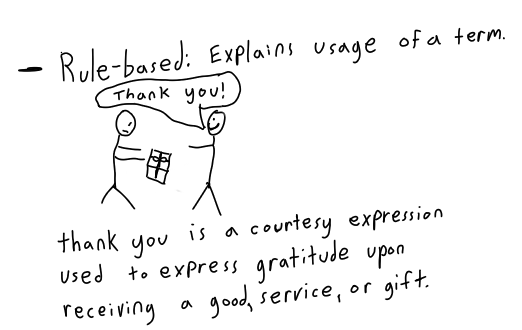 - Rule-based: Explains usage of a term.
Thank you!
thank you is a courtesy expression
used to express gratitude upon
receiving a good, service, or gift.